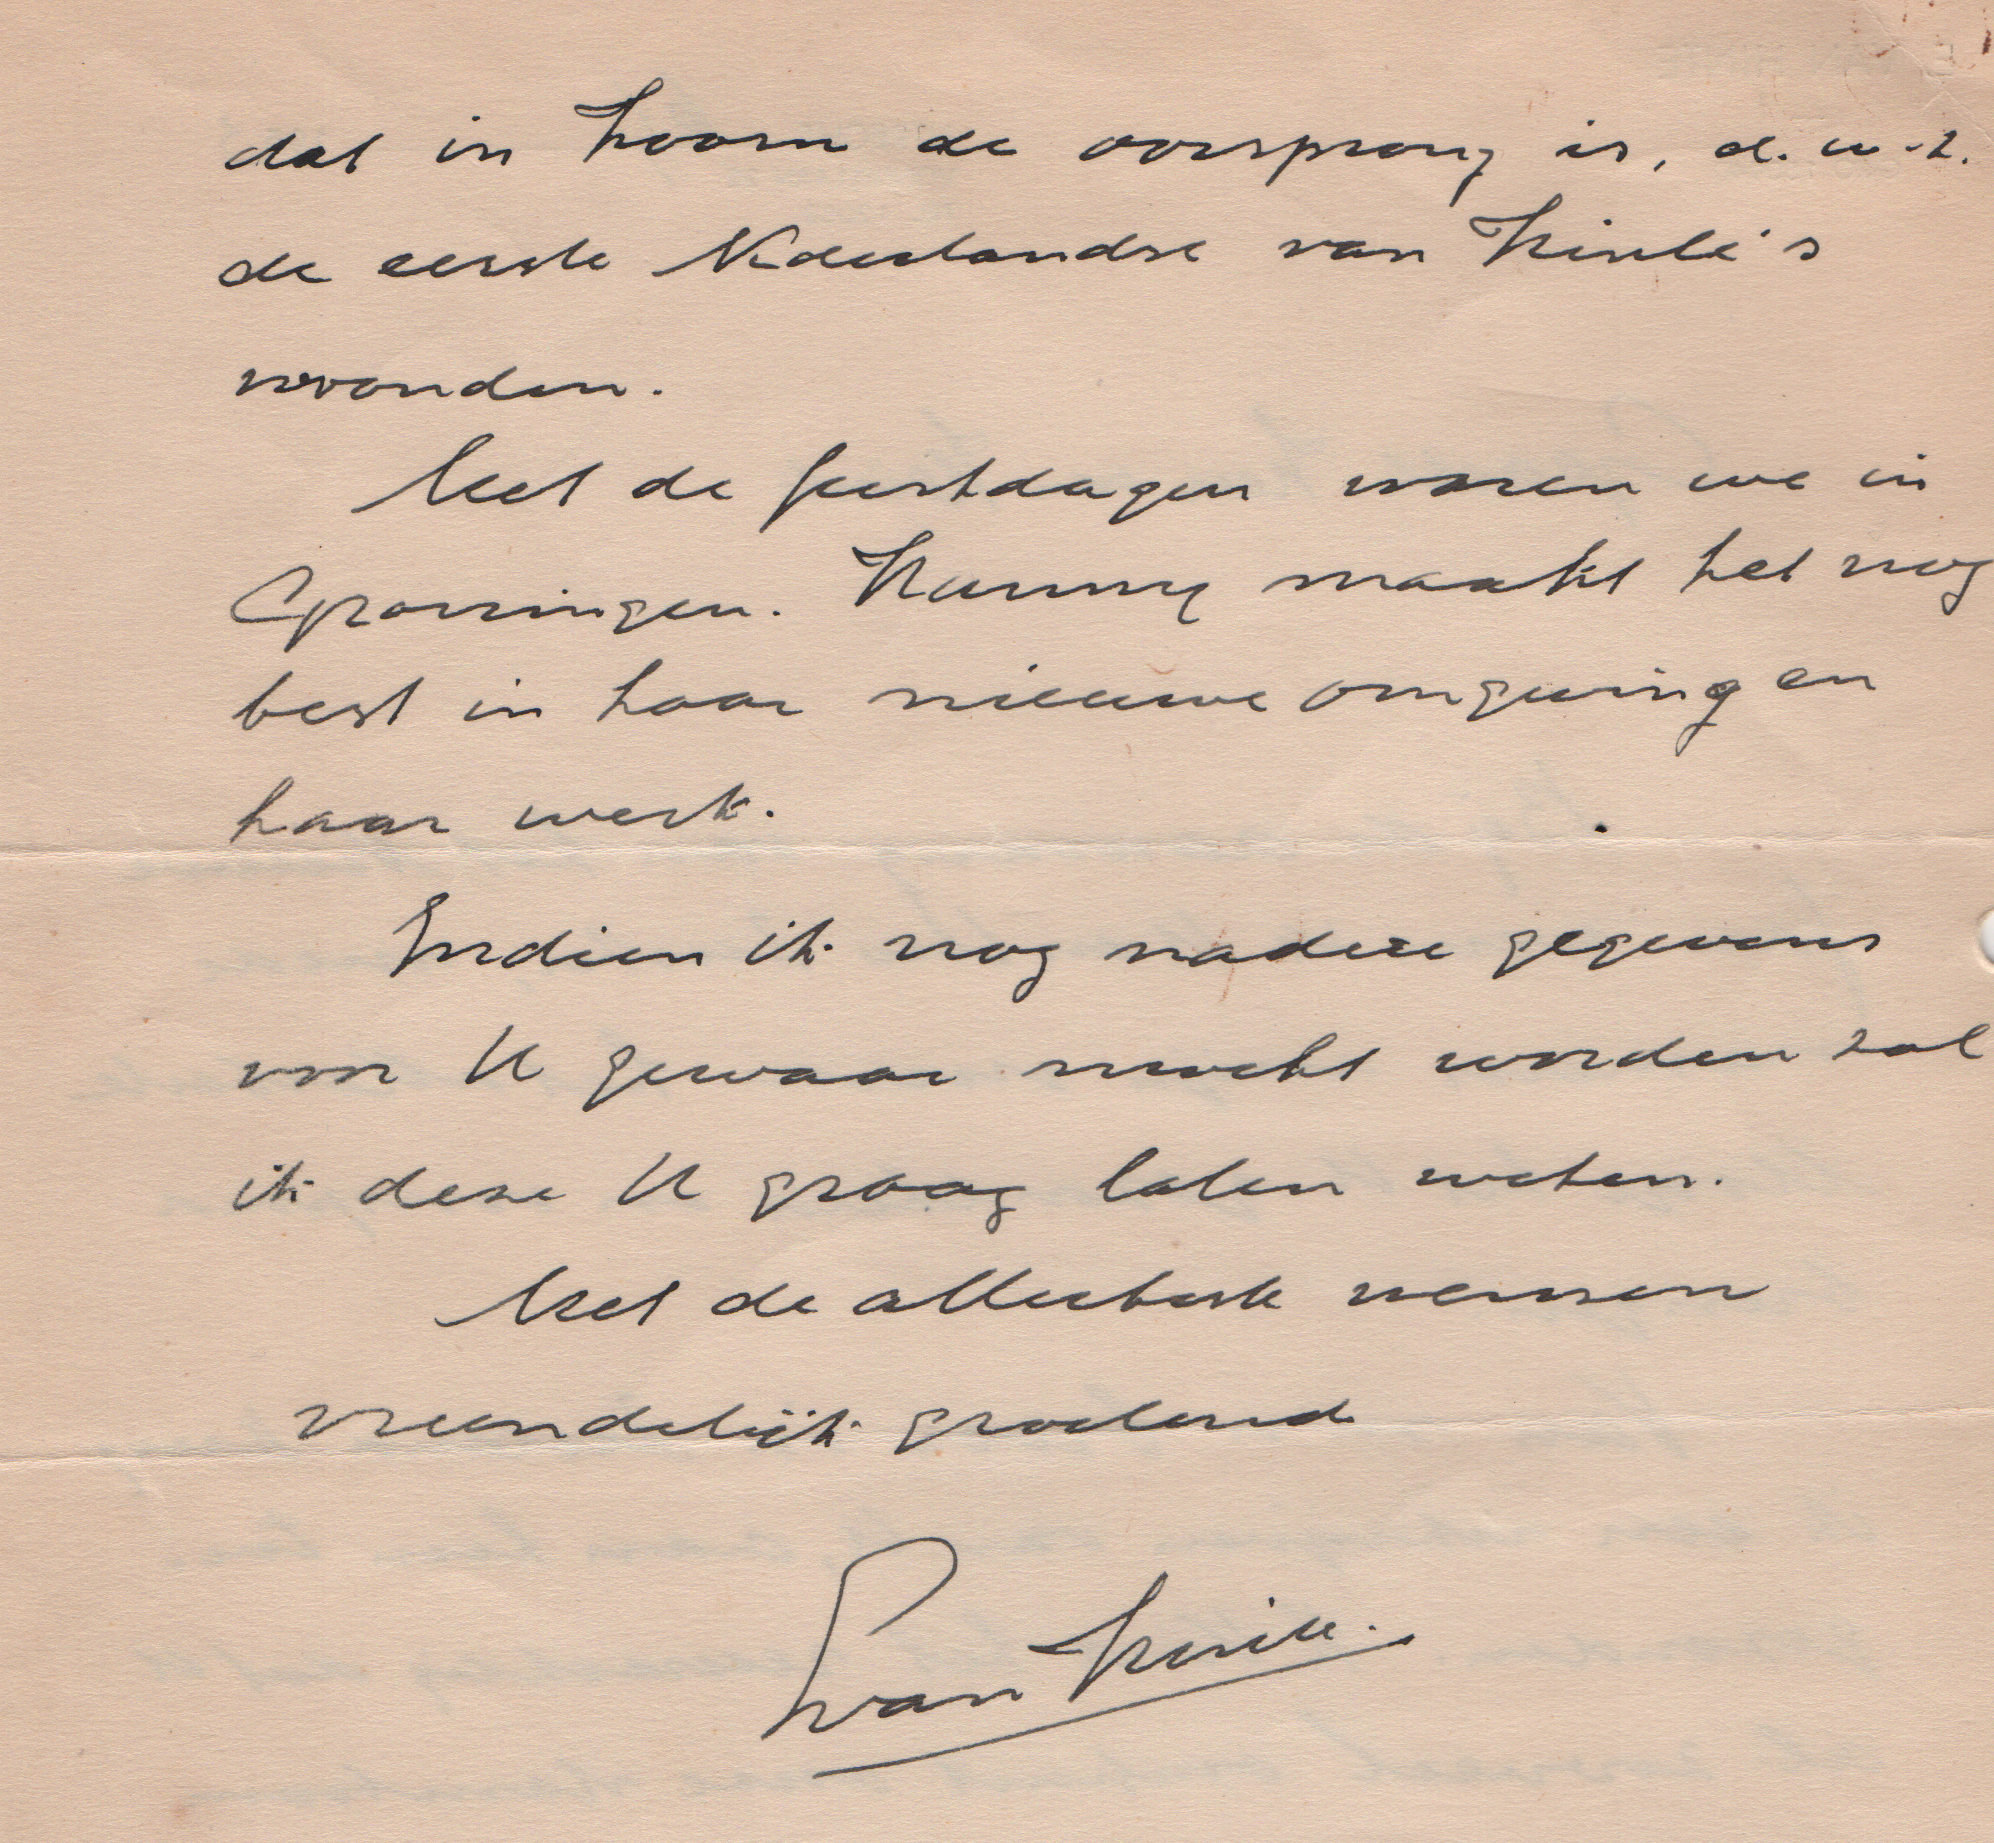 dat in Hoorn de oorsprong is, d.w.z.
de eerste Nederlandse van Kinlé's
woonden.
Met de feestdagen waren we in
Groningen. Hanny maakt het nog
best in haar nieuwe omgeving en
haar werk.
Indien ik nog nadere gegevens
voor U gewaar mocht worden zal
ik deze U graag laten weten.
Met de allerbeste wensen
vriendelijk groetend
van